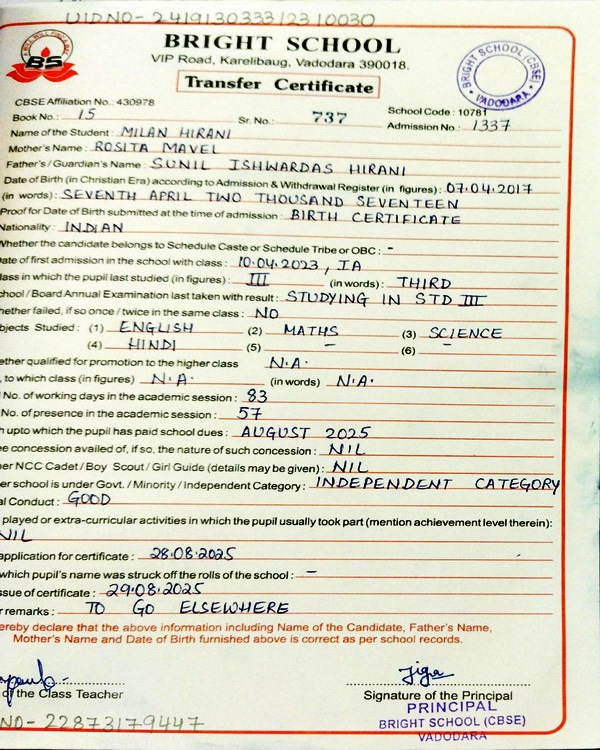 UIDNO-2419130333/2310030
BS
BRIGHT SCHOOL
VIP Road, Karelibaug, Vadodara 390018.
Transfer Certificate
BRIGHT SCHOOL (CBSE) VADODARA
CBSE Affiliation No.: 430978 School Code : 10781
Book No.: 15 Sr. No.: 737 Admission No.: 1337
Name of the Student : MILAN HIRANI
Mother's Name : ROSITA MAVEL
Father's / Guardian's Name : SUNIL ISHWARDAS HIRANI
Date of Birth (in Christian Era) according to Admission & Withdrawal Register (in figures) : 07.04.2017
(in words) : SEVENTH APRIL TWO THOUSAND SEVENTEEN
Proof for Date of Birth submitted at the time of admission : BIRTH CERTIFICATE
Nationality : INDIAN
Whether the candidate belongs to Schedule Caste or Schedule Tribe or OBC : -
ate of first admission in the school with class : 10.04.2023, IA
lass in which the pupil last studied (in figures) : III (in words) : THIRD
chool / Board Annual Examination last taken with result : STUDYING IN STD III
hether failed, if so once / twice in the same class : NO
bjects Studied : (1) ENGLISH (2) MATHS (3) SCIENCE
(4) HINDI (5) - (6) -
ether qualified for promotion to the higher class N.A.
, to which class (in figures) N.A. (in words) N.A.
No. of working days in the academic session : 83
No. of presence in the academic session : 57
h upto which the pupil has paid school dues : AUGUST 2025
ee concession availed of, if so, the nature of such concession : NIL
er NCC Cadet / Boy Scout / Girl Guide (details may be given) : NIL
er school is under Govt. / Minority / Independent Category : INDEPENDENT CATEGORY
al Conduct : GOOD
played or extra-curricular activities in which the pupil usually took part (mention achievement level therein):
NIL
application for certificate : 28.08.2025
which pupil's name was struck off the rolls of the school : -
ssue of certificate : 29.08.2025
r remarks : TO GO ELSEWHERE
ereby declare that the above information including Name of the Candidate, Father's Name,
Mother's Name and Date of Birth furnished above is correct as per school records.
of the Class Teacher Signature of the Principal
PRINCIPAL
BRIGHT SCHOOL (CBSE)
VADODARA
NO- 22873179447